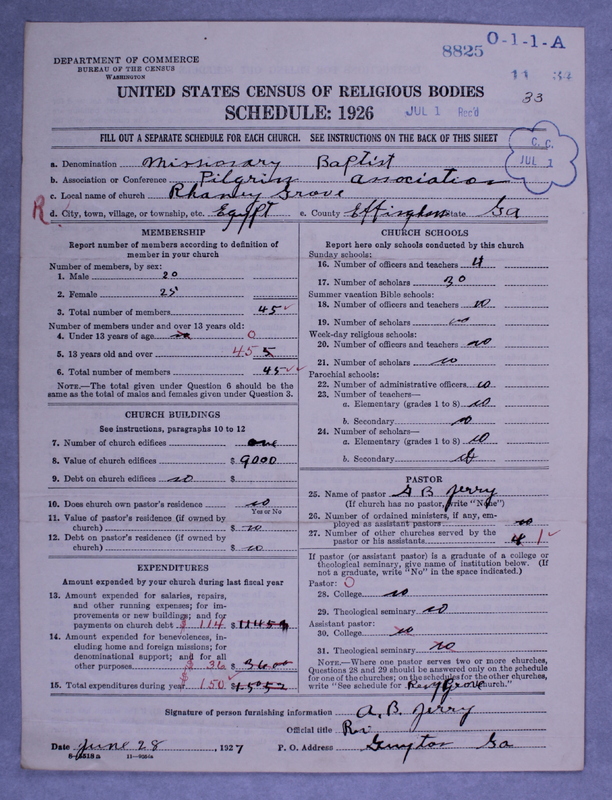 8825 O-1-1-A
DEPARTMENT OF COMMERCE
BUREAU OF THE CENSUS
WASHINGTON
11 32
33
UNITED STATES CENSUS OF RELIGIOUS BODIES
SCHEDULE: 1926
JUL 1 Rec'd
FILL OUT A SEPARATE SCHEDULE FOR EACH CHURCH. SEE INSTRUCTIONS ON THE BACK OF THIS SHEET
C. C.
JUL 1
a. Denomination Missionary Baptist
b. Association or Conference Pilgrim Association
c. Local name of church Rhaney Grove
R d. City, town, village, or township, etc. Egypt e. County Effingham State Ga
MEMBERSHIP
Report number of members according to definition of
member in your church
Number of members, by sex:
1. Male 20
2. Female 25
3. Total number of members 45
Number of members under and over 13 years old:
4. Under 13 years of age no 0
5. 13 years old and over 45 5
6. Total number of members 45
NOTE.—The total given under Question 6 should be
same as the total of males and females given under Question 3.
CHURCH BUILDINGS
See instructions, paragraphs 10 to 12
7. Number of church edifices one
8. Value of church edifices $ 9000
9. Debt on church edifices no $
10. Does church own pastor's residence no
Yes or No
11. Value of pastor's residence (if owned by
church) $ no
12. Debt on pastor's residence (if owned by
church) $ no
EXPENDITURES
Amount expended by your church during last fiscal year
13. Amount expended for salaries, repairs,
and other running expenses; for im-
provements or new buildings; and for
payments on church debt $ 114 $
14. Amount expended for benevolences, in-
cluding home and foreign missions; for
denominational support; and for all
other purposes $ 36 $ 36.00
15. Total expenditures during year $ 150 $
CHURCH SCHOOLS
Report here only schools conducted by this church
Sunday schools:
16. Number of officers and teachers 4
17. Number of scholars 30
Summer vacation Bible schools:
18. Number of officers and teachers no
19. Number of scholars no
Week-day religious schools:
20. Number of officers and teachers no
21. Number of scholars no
Parochial schools:
22. Number of administrative officers no
23. Number of teachers—
a. Elementary (grades 1 to 8) no
b. Secondary no
24. Number of scholars—
a. Elementary (grades 1 to 8) no
b. Secondary
PASTOR
25. Name of pastor A B Jerry
(If church has no pastor, write "None")
26. Number of ordained ministers, if any, em-
ployed as assistant pastors no
27. Number of other churches served by the
pastor or his assistants 4 1
If pastor (or assistant pastor) is a graduate of a college or
theological seminary, give name of institution below. (If
not a graduate, write "No" in the space indicated.)
Pastor: O
28. College no
29. Theological seminary no
Assistant pastor:
30. College no
31. Theological seminary no
NOTE.—Where one pastor serves two or more churches,
Questions 28 and 29 should be answered only on the schedule
for one of the churches; on the schedules for the other churches,
write "See schedule for Grove church."
Signature of person furnishing information A. B. Jerry
Official title Rev
Date June 28, 1927 P. O. Address Guyton Ga
11—9094a